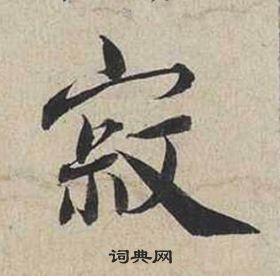 寂
词典网